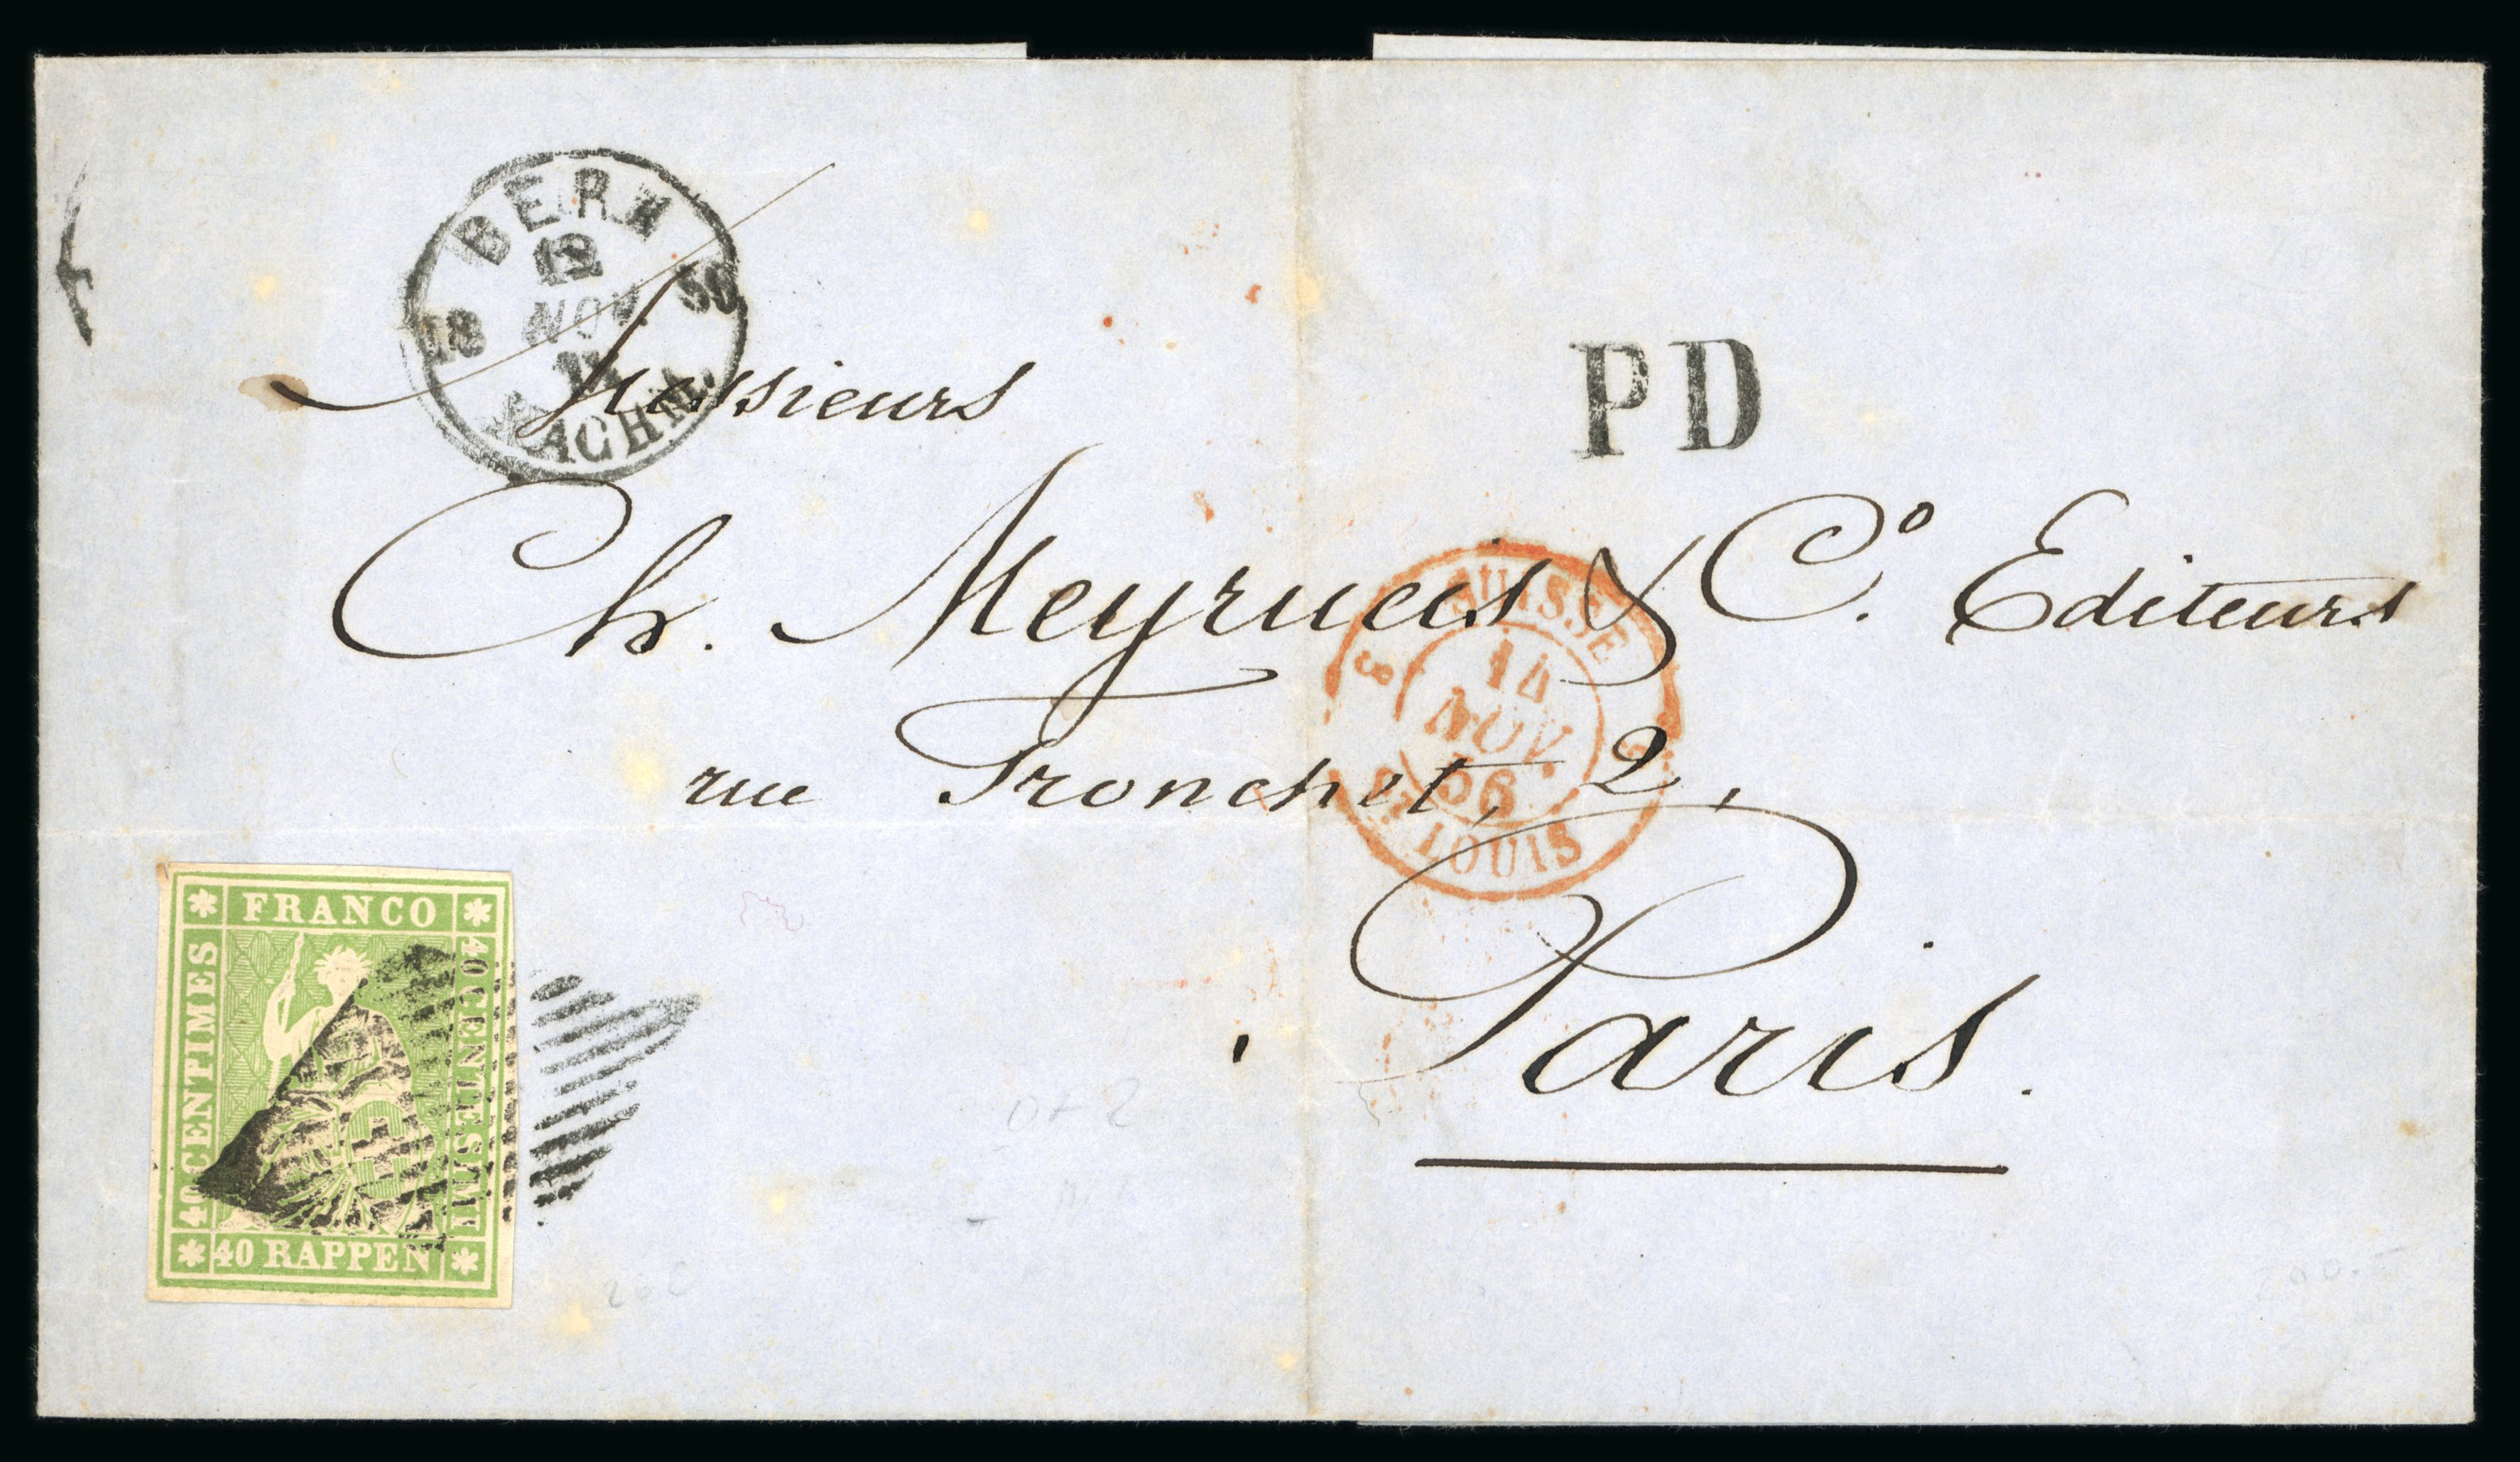 BERN
12
18 NOV. 56
NACHM.
PD
Messieurs
Ch. Meyrueis & Co. Editeurs
rue Tronchet, 2,
Paris.
SUISSE
14
NOV.
56
ST LOUIS
FRANCO
40 CENTIMES
40 CENTESIMI
40 RAPPEN